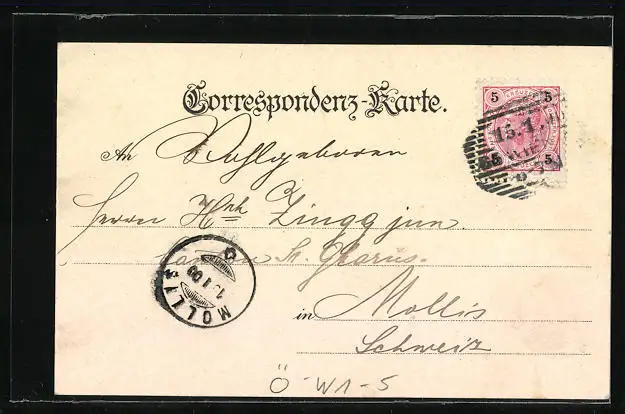 Correspondenz-Karte.
An Wohlgeboren
Herrn Hch Zingg jun.
Canton St. Glarus.
in Mollis
Schweiz
5 KREUZER 5
5 5
15.1.
MOLLIS
I 00
Ö-W1-5